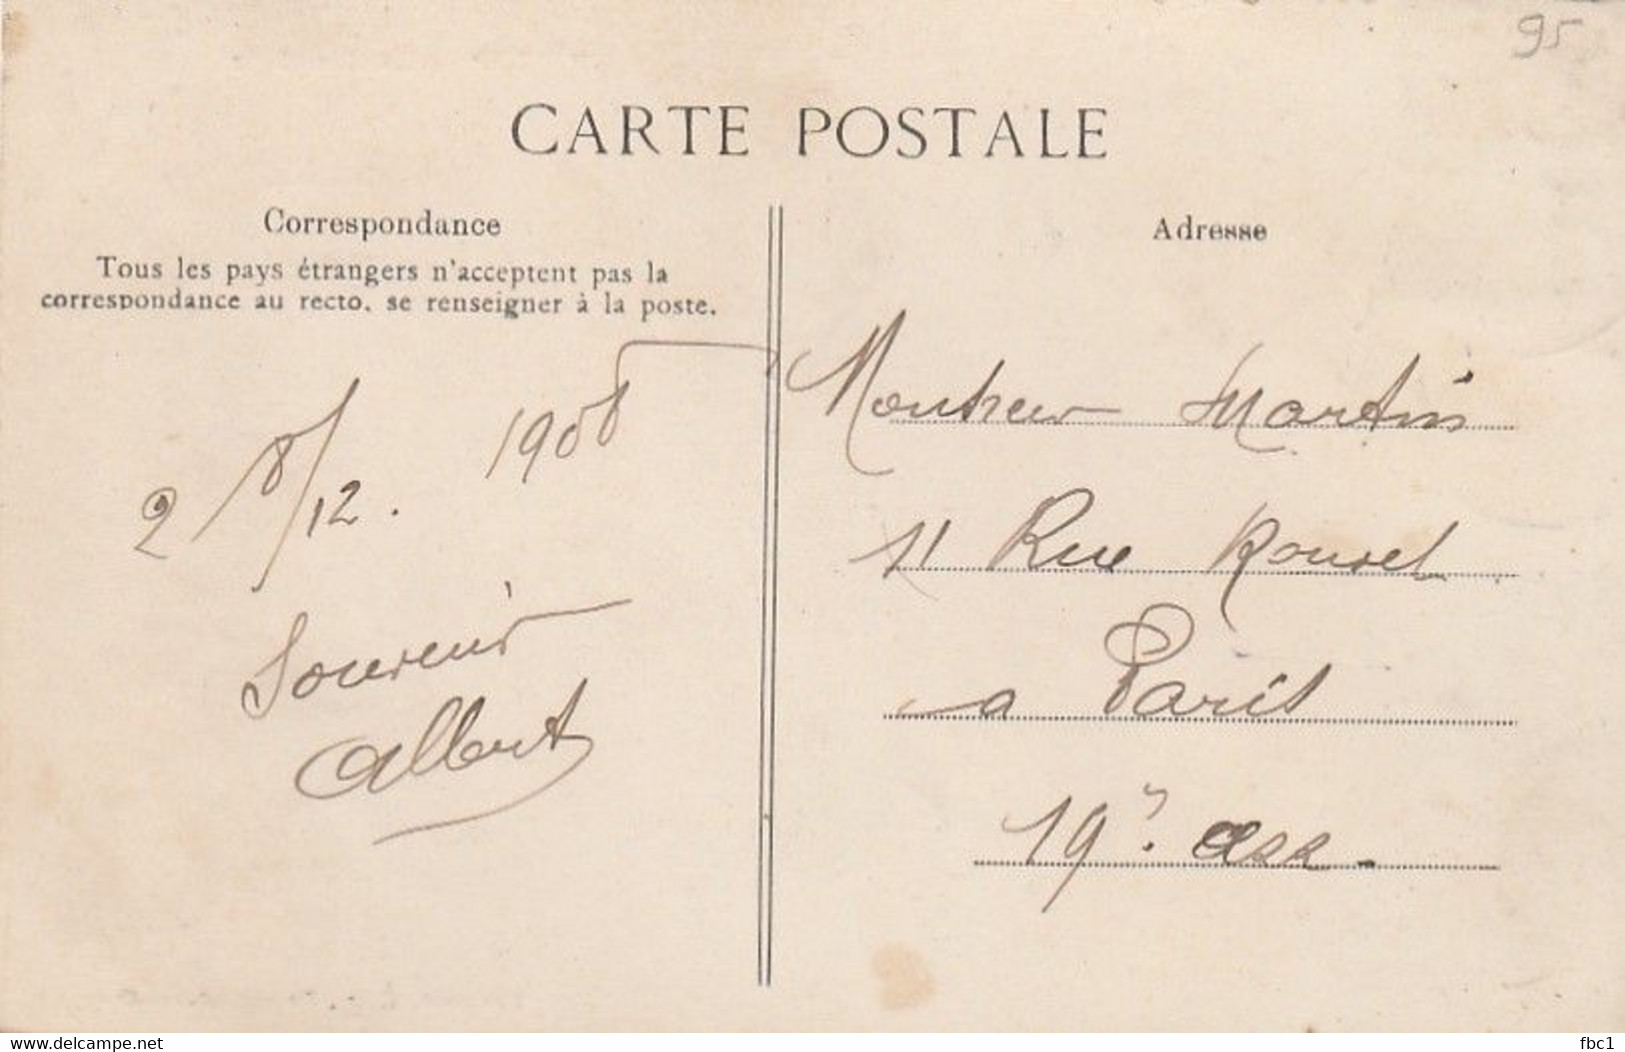 95
CARTE POSTALE
Correspondance
Tous les pays étrangers n'acceptent pas la
correspondance au recto, se renseigner à la poste.
28/12. 1908
Souvenir
Albert
Adresse
Monsieur Martin
11 Rue Rouvet
a Paris
19e. arr.
delcampe.net
fbc1